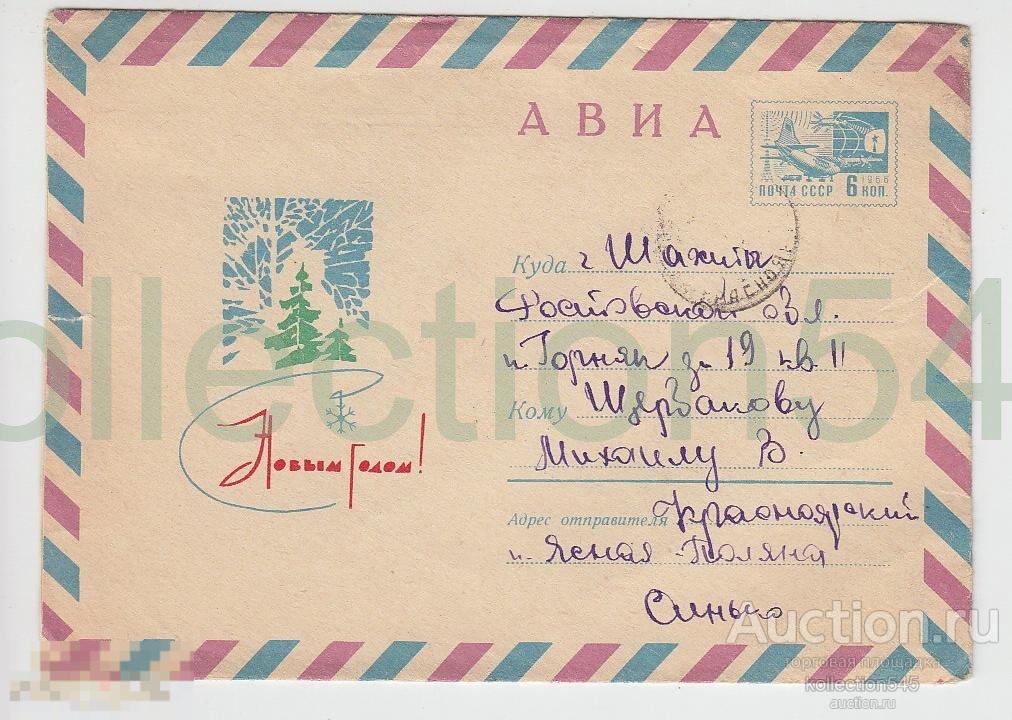 АВИА
ПОЧТА СССР 6 КОП.
1966
Куда г Шахты
Ростовской обл.
п. Горняк 19 кв 11
Кому Щербакову
Михаилу В.
Адрес отправителя Красноярский
п. Ясная Поляна
Синько
С Новым Годом!
kollection545
Auction.ru
торговая площадка
kollection545
auction.ru